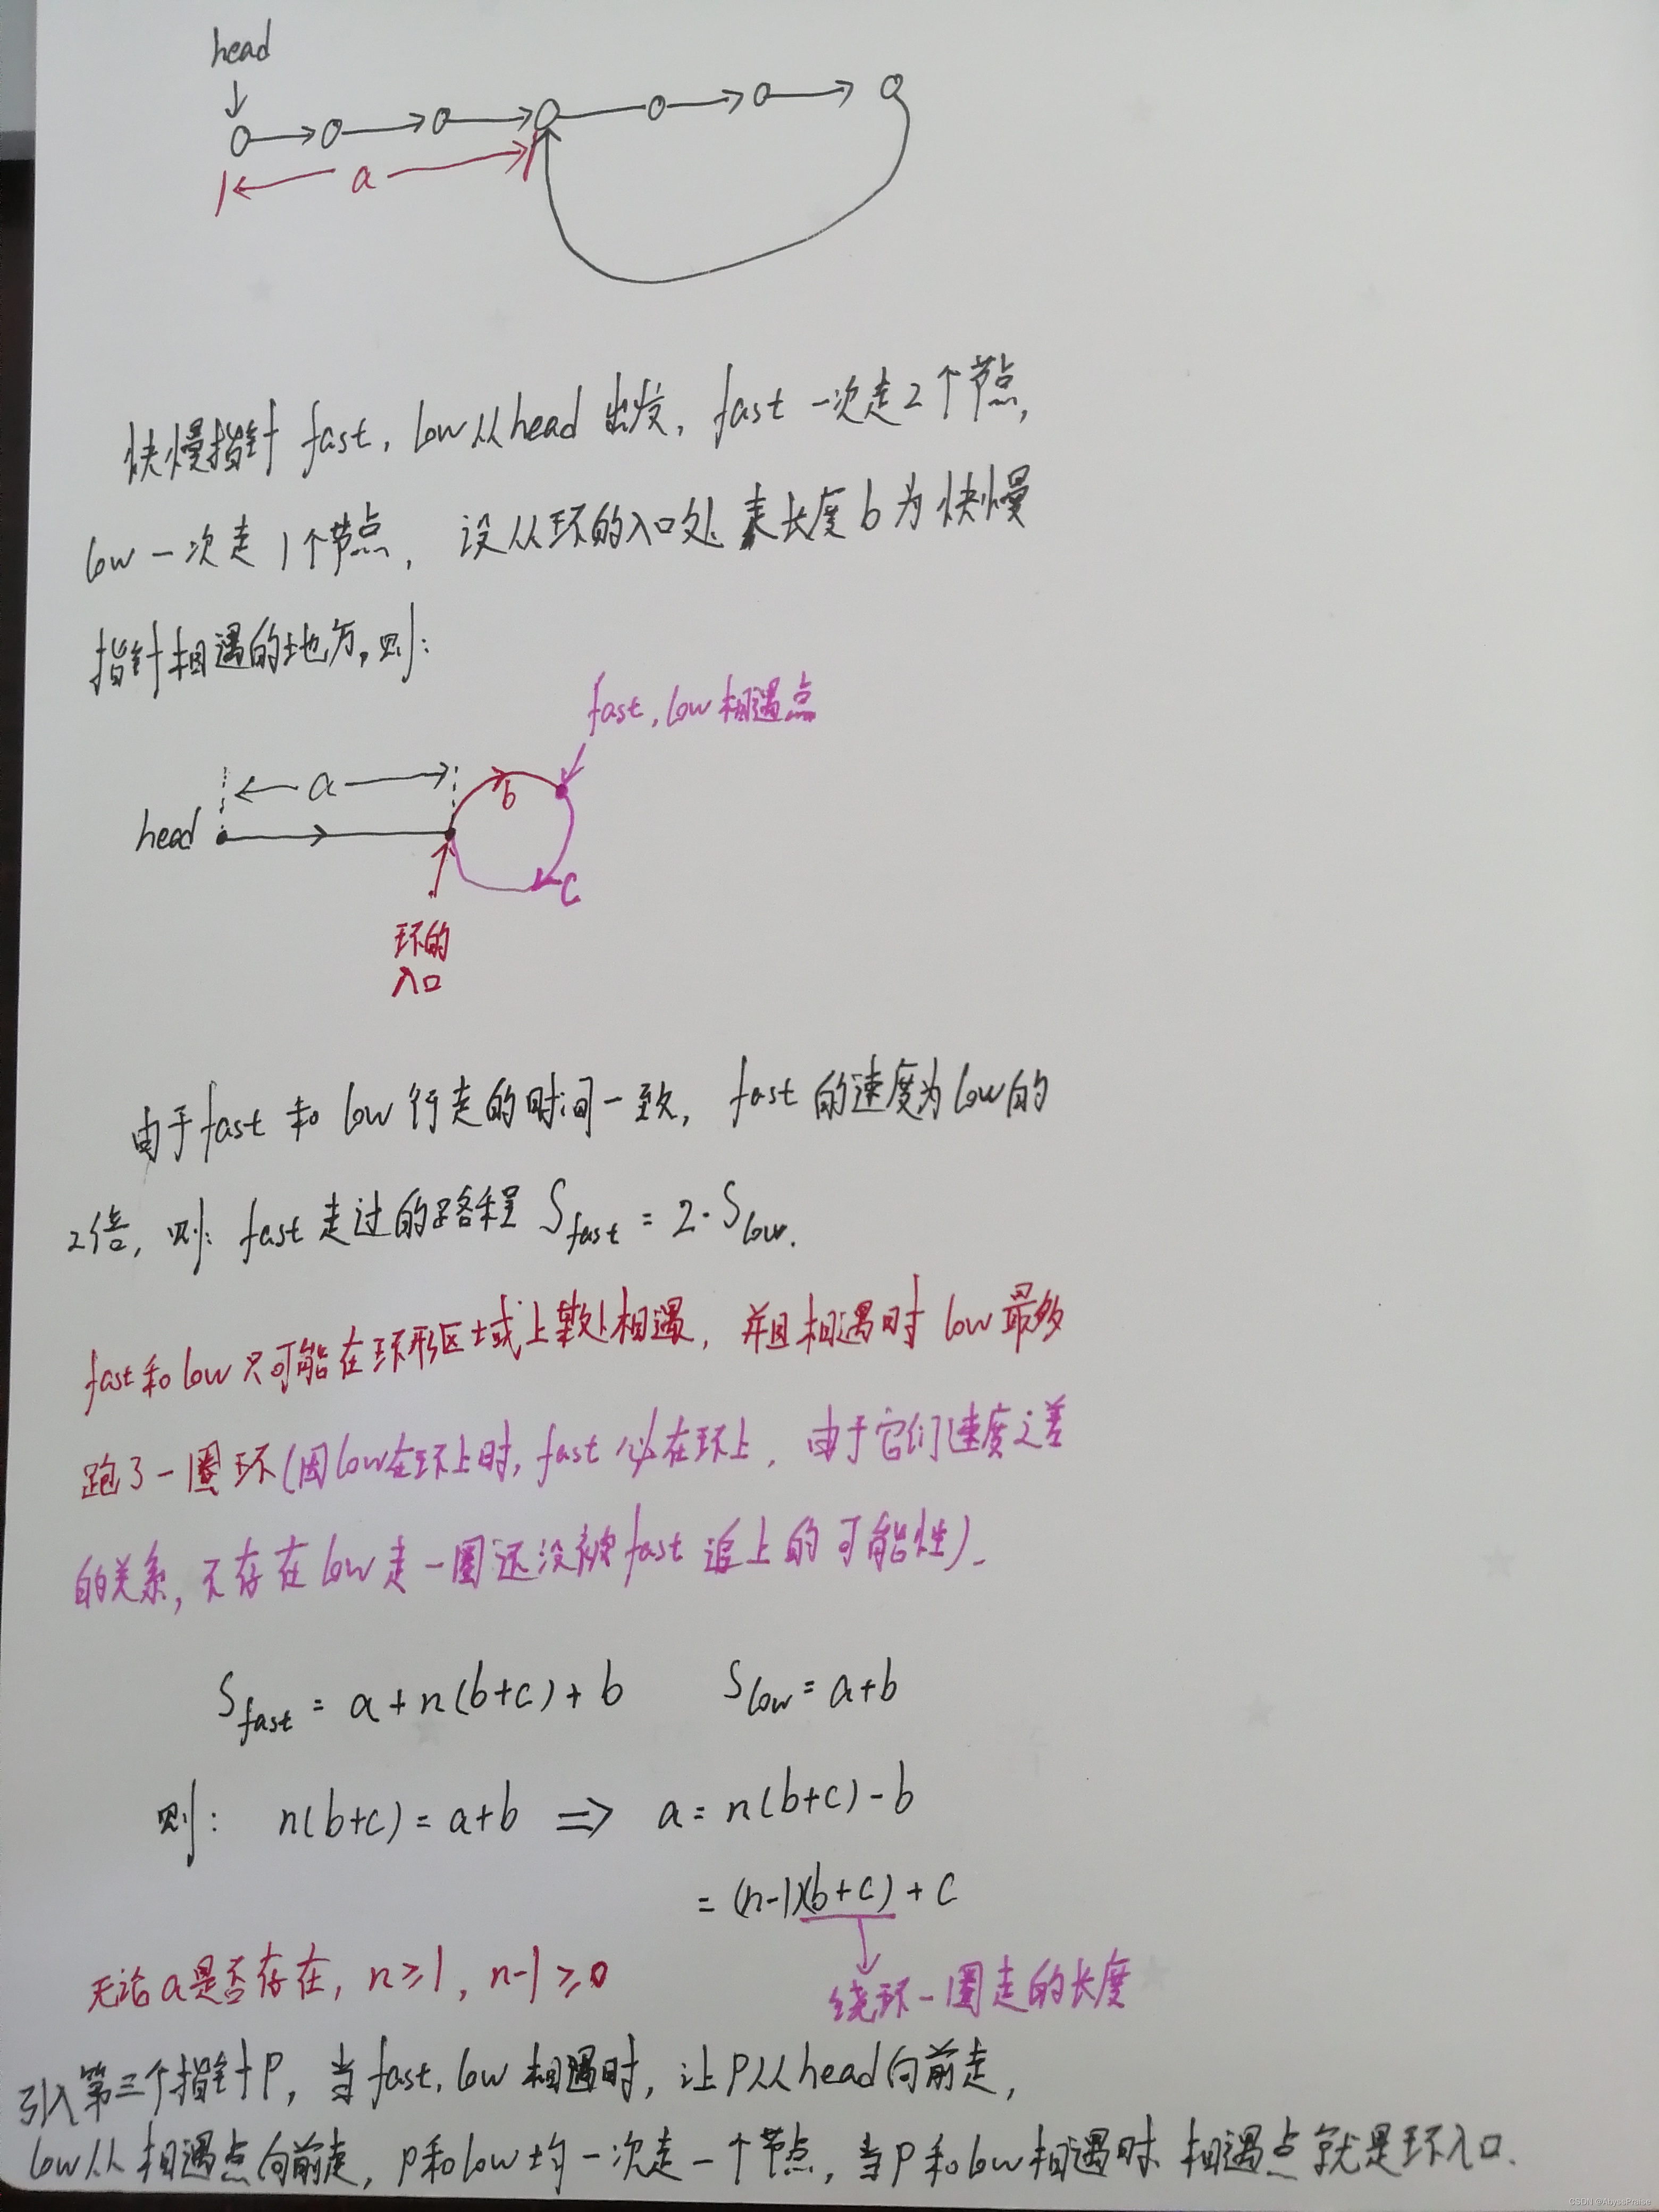 head
a
快慢指针 fast, low从head 出发, fast 一次走2个节点,
low 一次走 1个节点, 设从环的入口处 走长度 b 为 快慢
指针相遇的地方,则:
fast, low 相遇点
a
b
head
c
环的
入口
由于fast 和 low 行走的时间一致, fast 的速度为low的
2倍, 则: fast 走过的路程 S_fast = 2·S_low.
fast和low只可能在环形区域上 相遇, 并且相遇时 low 最多
跑了一圈环(因low在环上时, fast 必在环上, 由于它们速度之差
的关系, 不存在 low 走一圈还没被fast 追上的可能性).
S_fast = a+n(b+c)+b S_low = a+b
则: n(b+c) = a+b ⇒ a = n(b+c)-b
= (n-1)(b+c)+c
无论a是否存在, n≥1, n-1≥0
绕环一圈走的长度
引入第三个指针P, 当fast, low 相遇时, 让P从head向前走,
low从相遇点向前走, P和low均一次走一个节点, 当P和low相遇时 相遇点就是环入口.
CSDN @AbyssPraise